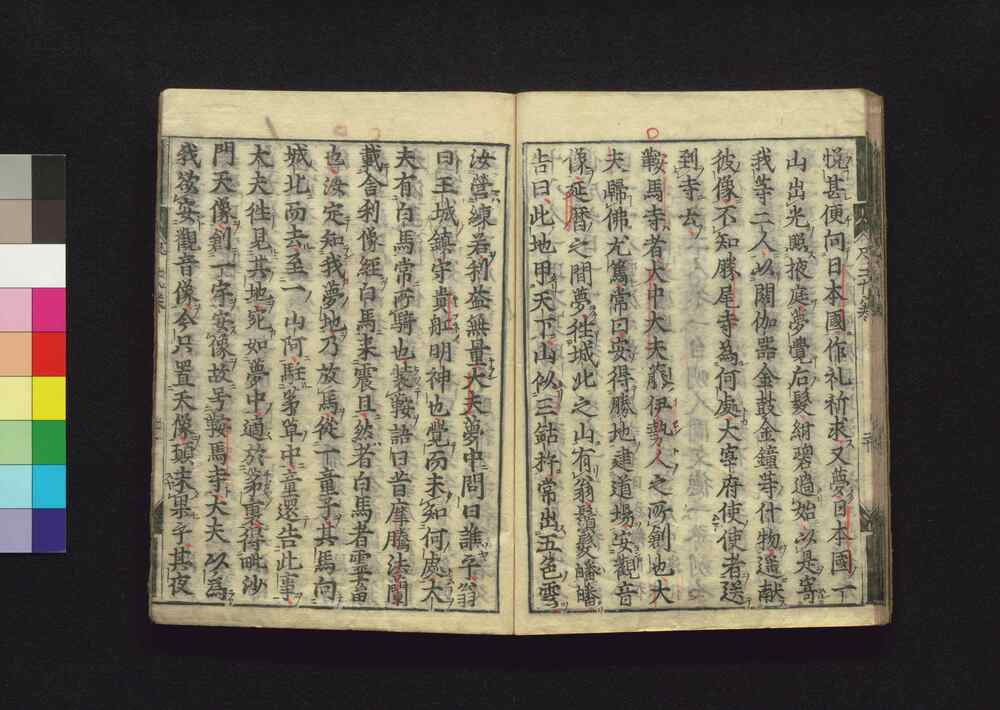 悦甚便向日本國作礼祈求又夢日本國一
山出光照掖庭夢覺右髮紺碧適始以是寄
我等二人以閼伽器金鼓金鐘等什物遥献
彼像不知勝尾寺為何處大宰府使使者送
到寺去
鞍馬寺者大中大夫藤伊勢人之所創也大
夫歸佛尤篤常曰安得勝地建道場安觀音
像延曆之間夢徃城北之山有翁鬚髮皤皤
告曰此地甲天下山似三鈷杵常出五色雲
汝營練若利益無量大夫夢中問曰誰乎翁
曰王城鎮守貴舩明神也覺而未知何處大
夫有白馬常所騎也裝鞍語曰昔摩騰法蘭
載舍利像經白馬来震旦然者白馬者霊畜
也汝定知我夢地乃放馬從一童子其馬向
城北而去至一山阿駐茅草中童還告此事
大夫徃見其地宛如夢中適於茅裏得毗沙
門天像創一宇安像故号鞍馬寺大夫以為
我欲安觀音像今只置天像頑未果乎其夜